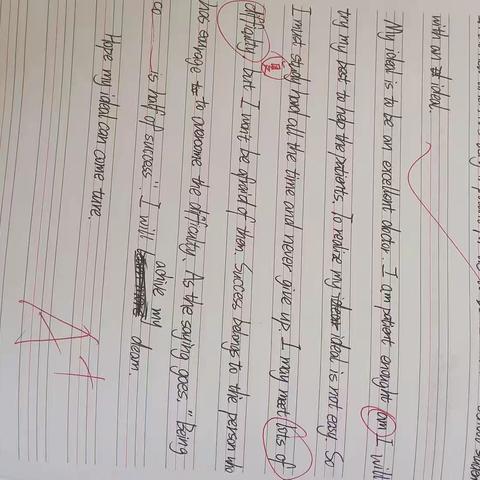 with an ideal.
My ideal is to be an excellent doctor. I am patient enought am I will
try my best to help the patients. To realize my ideal is not easy. So
I must study hard all the time and never give up. I may meet lots of
difficulty but I won't be afraid of them. Success belongs to the person who
has courage to overcome the difficulty. As the saying goes "Being
co is half of success". I will achive my dream.
Hope my ideal can come ture.
A+